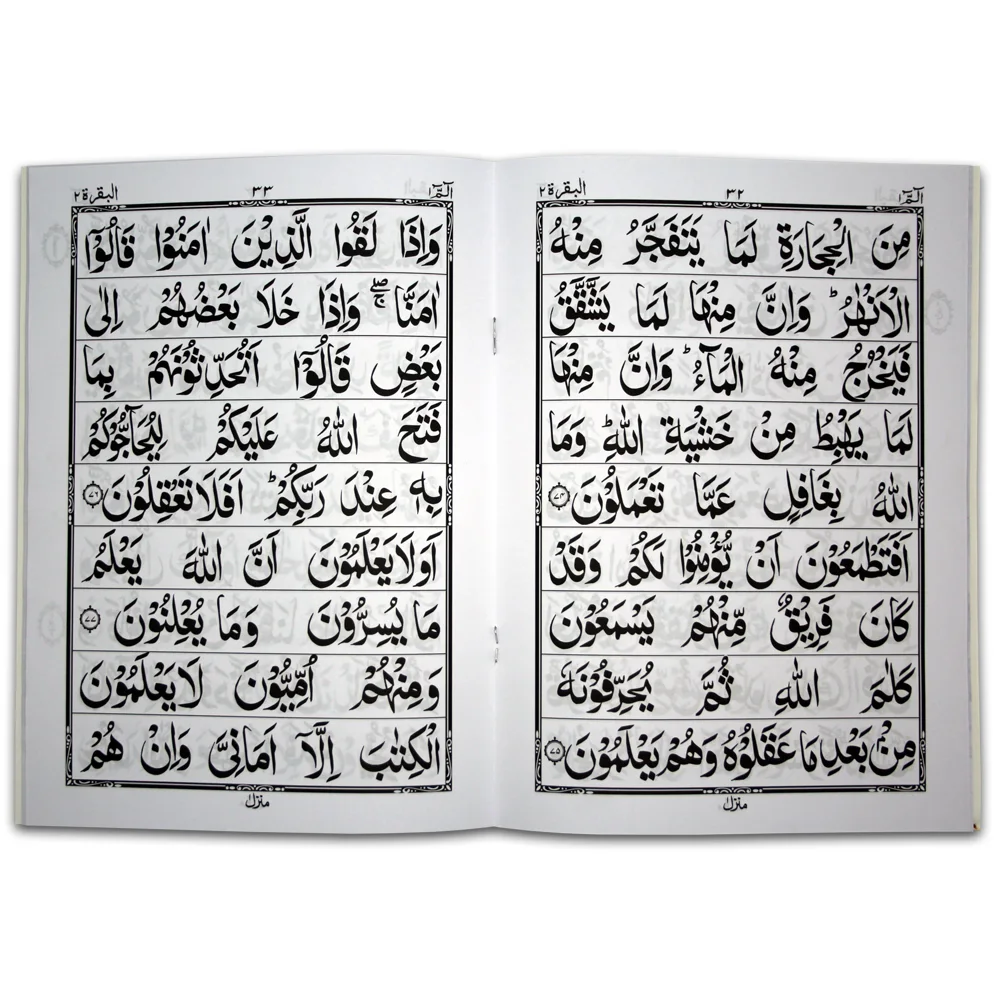 الٓمّٓ ١
٣٢
البقرة ٢
مِنَ الْحِجَارَةِ لَمَا يَتَفَجَّرُ مِنْهُ
الْاَنْهٰرُ ؕ وَاِنَّ مِنْهَا لَمَا يَشَّقَّقُ
فَيَخْرُجُ مِنْهُ الْمَآءُ ؕ وَاِنَّ مِنْهَا
لَمَا يَهْبِطُ مِنْ خَشْيَةِ اللّٰهِ ؕ وَمَا
اللّٰهُ بِغَافِلٍ عَمَّا تَعْمَلُوْنَ ﴿٧٤﴾
اَفَتَطْمَعُوْنَ اَنْ يُّؤْمِنُوْا لَكُمْ وَقَدْ
كَانَ فَرِيْقٌ مِّنْهُمْ يَسْمَعُوْنَ
كَلٰمَ اللّٰهِ ثُمَّ يُحَرِّفُوْنَهٗ
مِنْۢ بَعْدِ مَا عَقَلُوْهُ وَهُمْ يَعْلَمُوْنَ ﴿٧٥﴾
منزل
الٓمّٓ ١
٣٣
البقرة ٢
وَاِذَا لَقُوا الَّذِيْنَ اٰمَنُوْا قَالُوْٓا
اٰمَنَّا ۖۚ وَاِذَا خَلَا بَعْضُهُمْ اِلٰى
بَعْضٍ قَالُوْٓا اَتُحَدِّثُوْنَهُمْ بِمَا
فَتَحَ اللّٰهُ عَلَيْكُمْ لِيُحَآجُّوْكُمْ
بِهٖ عِنْدَ رَبِّكُمْ ؕ اَفَلَا تَعْقِلُوْنَ ﴿٧٦﴾
اَوَلَا يَعْلَمُوْنَ اَنَّ اللّٰهَ يَعْلَمُ
مَا يُسِرُّوْنَ وَمَا يُعْلِنُوْنَ ﴿٧٧﴾
وَمِنْهُمْ اُمِّيُّوْنَ لَا يَعْلَمُوْنَ
الْكِتٰبَ اِلَّآ اَمَانِىَّ وَاِنْ هُمْ
منزل